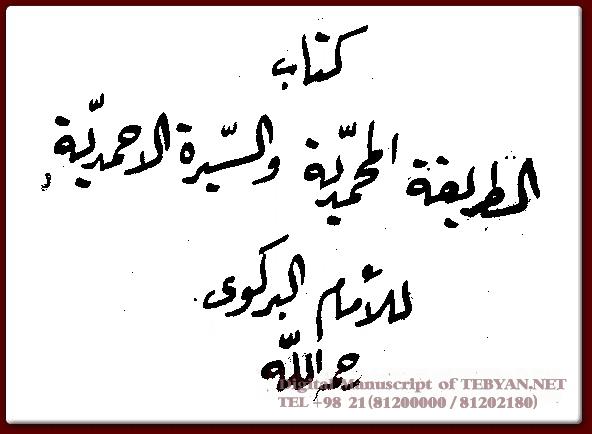 كتاب
الطريقة المحمديّة والسّيرة الاحمديّة
للأمام البركوى
رحمه اللّه
Digital Manuscript of TEBYAN.NET
TEL +98 21(81200000 / 81202180)